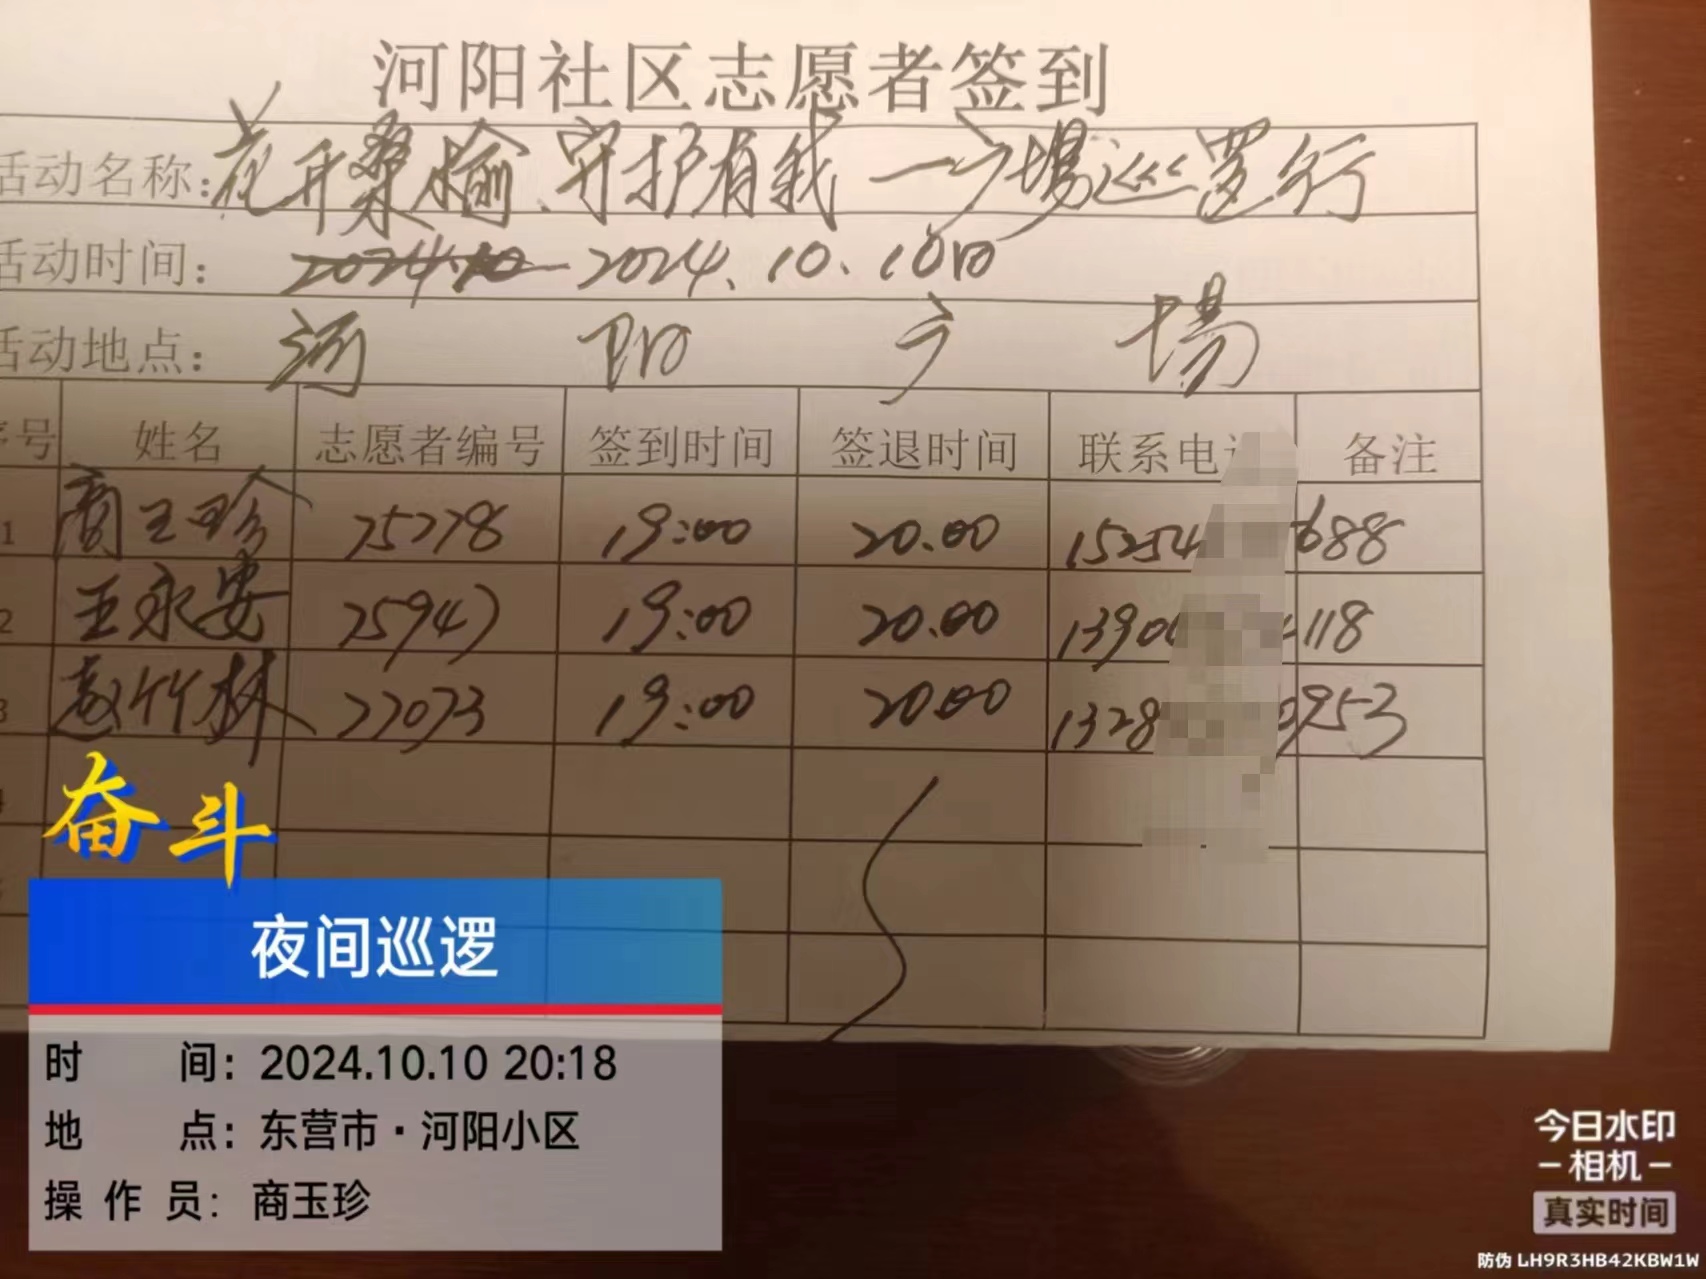 河阳社区志愿者签到
活动名称：花开桑榆、守护有我一广場巡逻行
活动时间： 2024.10.10日
活动地点：河 阳 广 場
序号 姓名 志愿者编号 签到时间 签退时间 联系电话 备注
1 商玉珍 75278 19:00 20.00 15254 688
2 王永安 75947 19:00 20.00 1390 118
3 赵竹林 77073 19:00 20.00 1328 0953
奋斗
夜间巡逻
时 间：2024.10.10 20:18
地 点：东营市·河阳小区
操 作 员：商玉珍
今日水印
-相机-
真实时间
防伪 LH9R3HB42KBW1W